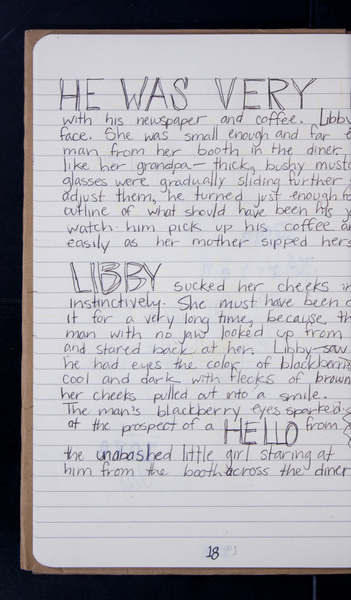 HE WAS VERY
with his newspaper and coffee. Libby
face. She was small enough and far
man from her booth in the diner,
like her grandpa— thick, bushy
glasses were gradually sliding further
adjust them, he turned just enough
outline of what should have been his
watch him pick up his coffee
easily as her mother sipped hers
LIBBY sucked her cheeks
instinctively. She must have been
it for a very long time, because,
man with no jaw looked up from
and stared back at her. Libby saw
he had eyes the color of
cool and dark with flecks of brown
her cheeks pulled out into a smile.
The man's blackberry eyes sparked
at the prospect of a HELLO from
the unabashed little girl staring at
him from the booth across the diner
18